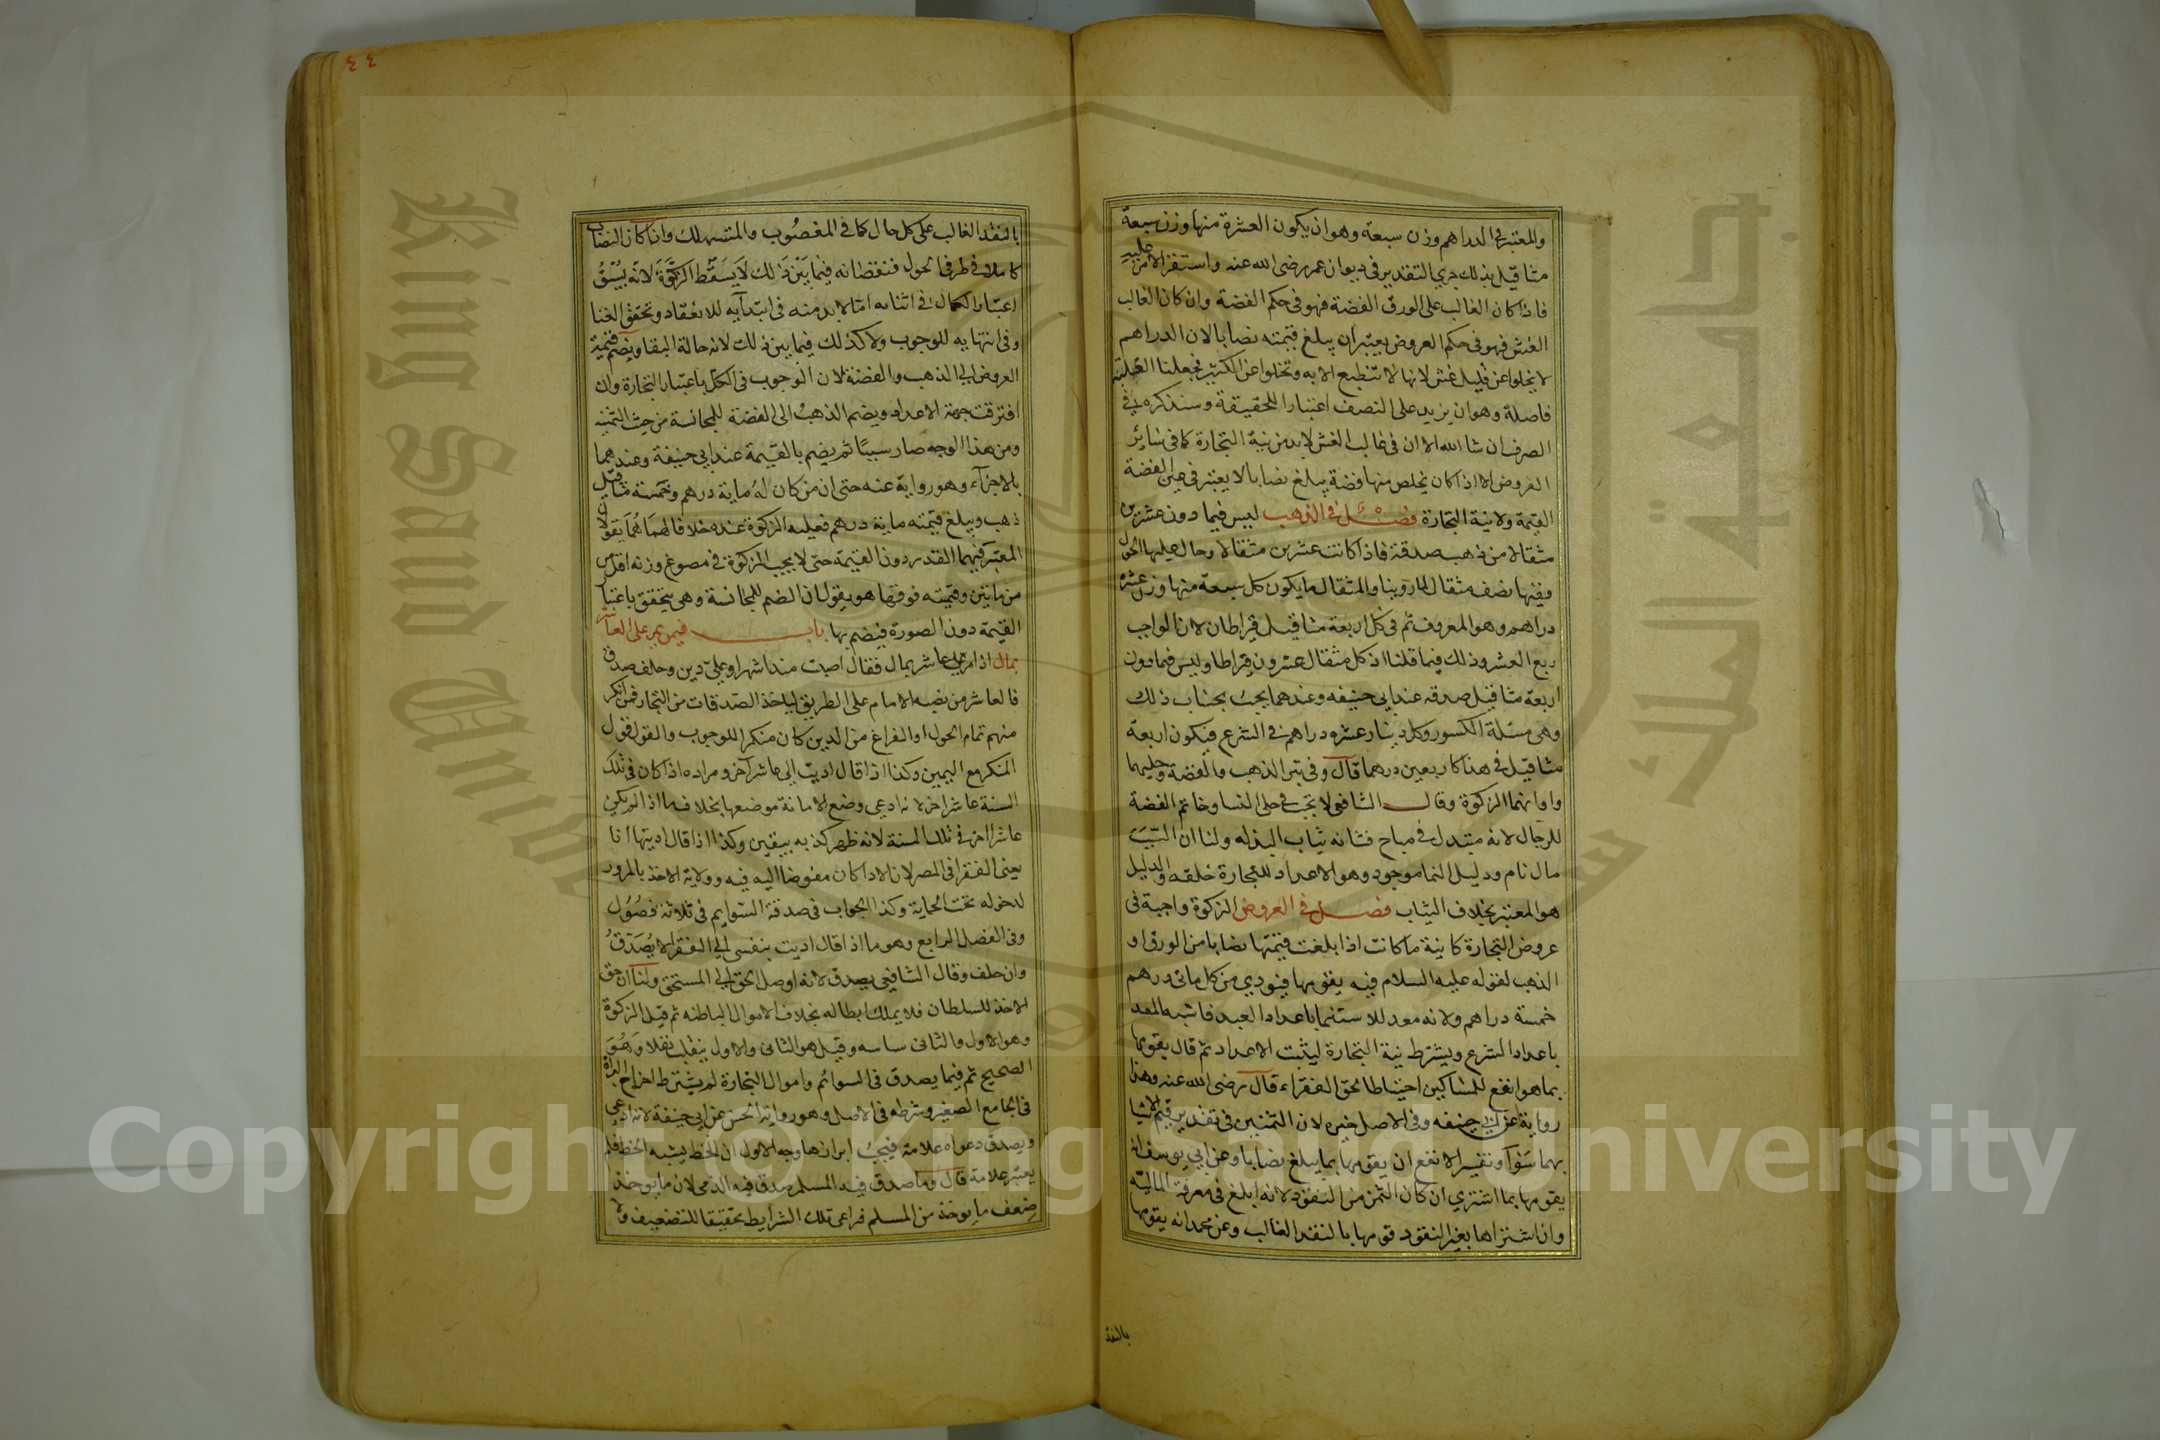 ٤٤
والمعتبر في الدراهم وزن سبعة وهو ان يكون العشرة منها وزن سبعة
مثاقيل بذلك جري التقدير في ديوان عمر رضى الله عنه واستقر الامر عليه
فاذا كان الغالب على الورق الفضة فهو في حكم الفضة وان كان الغالب
الغش فهو في حكم العروض يعتبر ان يبلغ قيمته نصابا لان الدراهم
لا يخلوا عن قليل غش لانها لا تنطبع الا به وتخلوا عن الكثير فجعلنا الغلبة
فاصلة وهو ان يزيد على النصف اعتبارا للحقيقة وسنذكره في
الصرف ان شا الله الا ان في غالب الغش لابد من نية التجارة كما في سائر
العروض الا اذا كان يخلص منها فضة يبلغ نصابا لا يعتبر في عين الفضة
القيمة ولا نية التجارة فصل في الذهب ليس فيما دون عشرين
مثقالا من ذهب صدقة فاذا كانت عشرين مثقالا وحال عليها الحول
ففيها نصف مثقال لما روينا والمثقال ما يكون كل سبعة منها وزن عشرة
دراهم وهو المعروف ثم في كل اربعة مثاقيل قيراطان لان الواجب
ربع العشر وذلك فيما قلنا اذ كل مثقال عشرون قيراطا وليس فيما دون
اربعة مثاقيل صدقه عند ابي حنيفه وعندهما يجب بحساب ذلك
وهى مسئلة الكسور وكل دينار عشرة دراهم في الشرع فيكون اربعة
مثاقيل في هذا كاربعين درهما قال وفي تبر الذهب والفضة وحليهما
واوانيهما الزكوة وقال الشافعى لا تجب في حلى النسا وخاتم الفضة
للرجال لانه مبتدل في مباح فشابه ثياب البذله ولنا ان السبب
مال نام ودليل النما موجود وهو الاعداد للتجارة خلقه والدليل
هو المعتبر بخلاف الثياب فصل في العروض الزكوة واجبة في
عروض التجارة كاينة ما كانت اذا بلغت قيمتها نصابا من الورق او
الذهب لقوله عليه السلام فيه يقومها فيودي من كل مائى درهم
خمسة دراهم ولانه معد للاستنما باعداد العبد فاشبه المعد
باعداد الشرع ويشترط نية التجارة ليثبت الاعداد ثم قال يقومها
بما هو انفع للمساكين احتياطا لحق الفقراء قال رضى الله عنه وهذا
رواية عن ابي حنيفه وفي الاصل خيره لان الثمنين في تقدير قيم الاشيا
بهما سوآ وتفسير الانفع ان يقومها بما يبلغ نصابا وعن ابي يوسف انه
يقومها بما اشتري ان كان الثمن من النقود لانه ابلغ في معرفة الماليه
وان اشتراها بغير النقود قومها بالنقد الغالب وعن محمد انه يقومها
بالنقد
بالنقد الغالب على كل حال كما في المغصوب والمستهلك واذا كان النصاب
كاملا في طرفى الحول فنقصانه فيما بين ذلك لا يسقط الزكوة لانه يشق
اعتبار الكمال في اثنائه اما لابد منه في ابتدآيه للانعقاد وتحقق الغنا
وفي انتهايه للوجوب ولا كذلك فيما بين ذلك لانه حالة البقا ويضم قيمة
العروض الي الذهب والفضة لان الوجوب في الكل باعتبار التجارة وان
افترقت جهة الاعداد ويضم الذهب الى الفضة للمجانسة من حيث الثمنية
ومن هذا الوجه صار سببا ثم يضم بالقيمة عند ابي حنيفة وعندهما
بالاجزآء وهو رواية عنه حتى ان من كان له ماية درهم وخمسة مثاقيل
ذهب ويبلغ قيمته ماية درهم فعليه الزكوة عنده خلافا لهما هما يقولان
المعتبر فيهما القدر دون القيمة حتى لا يجب الزكوة في مصوغ وزنه اقل
من مايتين وقيمته فوقها هو يقول ان الضم للمجانسة وهى يتحقق باعتبار
القيمة دون الصورة فيضم بها باب فيمن يمر على العاشر
بمال اذا مر على عاشر بمال فقال اصبت منذ اشهر او علي دين وحلف صدق
فالعاشر من نصبه الامام على الطريق لياخذ الصدقات من التجار فمن انكر
منهم تمام الحول او الفراغ من الدين كان منكرا للوجوب والقول قول
المنكر مع اليمين وكذا اذا قال اديت الى عاشر آخر ومراده اذا كان في تلك
السنة عاشر اخر لانه ادعى وضع الامانة موضعها بخلاف ما اذا لم يكن
عاشر اخر في تلك السنة لانه ظهر كذبه بيقين وكذا اذا قال اديتها انا
يعنى الفقرا في المصر لان الادا كان مفوضا اليه فيه وولاية الاخذ بالمرور
لدخوله تحت الحماية وكذا الجواب في صدقة السوايم في ثلاثة فصول
وفي الفصل الرابع وهو ما اذا قال اديت بنفسى الي الفقرا لا يصدق
وان حلف وقال الشافعى يصدق لانه اوصل الحق الي المستحق ولنا ان حق
الاخذ للسلطان فلا يملك ابطاله بخلاف الاموال الباطنه ثم قيل الزكوة
وهو الاول والثانى سياسه وقيل هو الثانى والاول ينقلب نفلا وهو
الصحيح ثم فيما يصدق في السوائم واموال التجارة لم يشترط اخراج البراة
في الجامع الصغير وشرطه في الاصل وهو رواية الحسن عن ابي حنيفة لانه ادعى
ويصدق دعواه علامة فيجب ابرازها وجه الاول ان الخط يشبه الخط فلم
يعتبر علامة قال وما صدق فيه المسلم صدق فيه الذمى لان ما يوخذ
ضعف ما يوخذ من المسلم فراعى تلك الشرايط تحقيقا للتضعيف ولا
King Saud
جامعة الملك سعود
Copyright © King Saud University